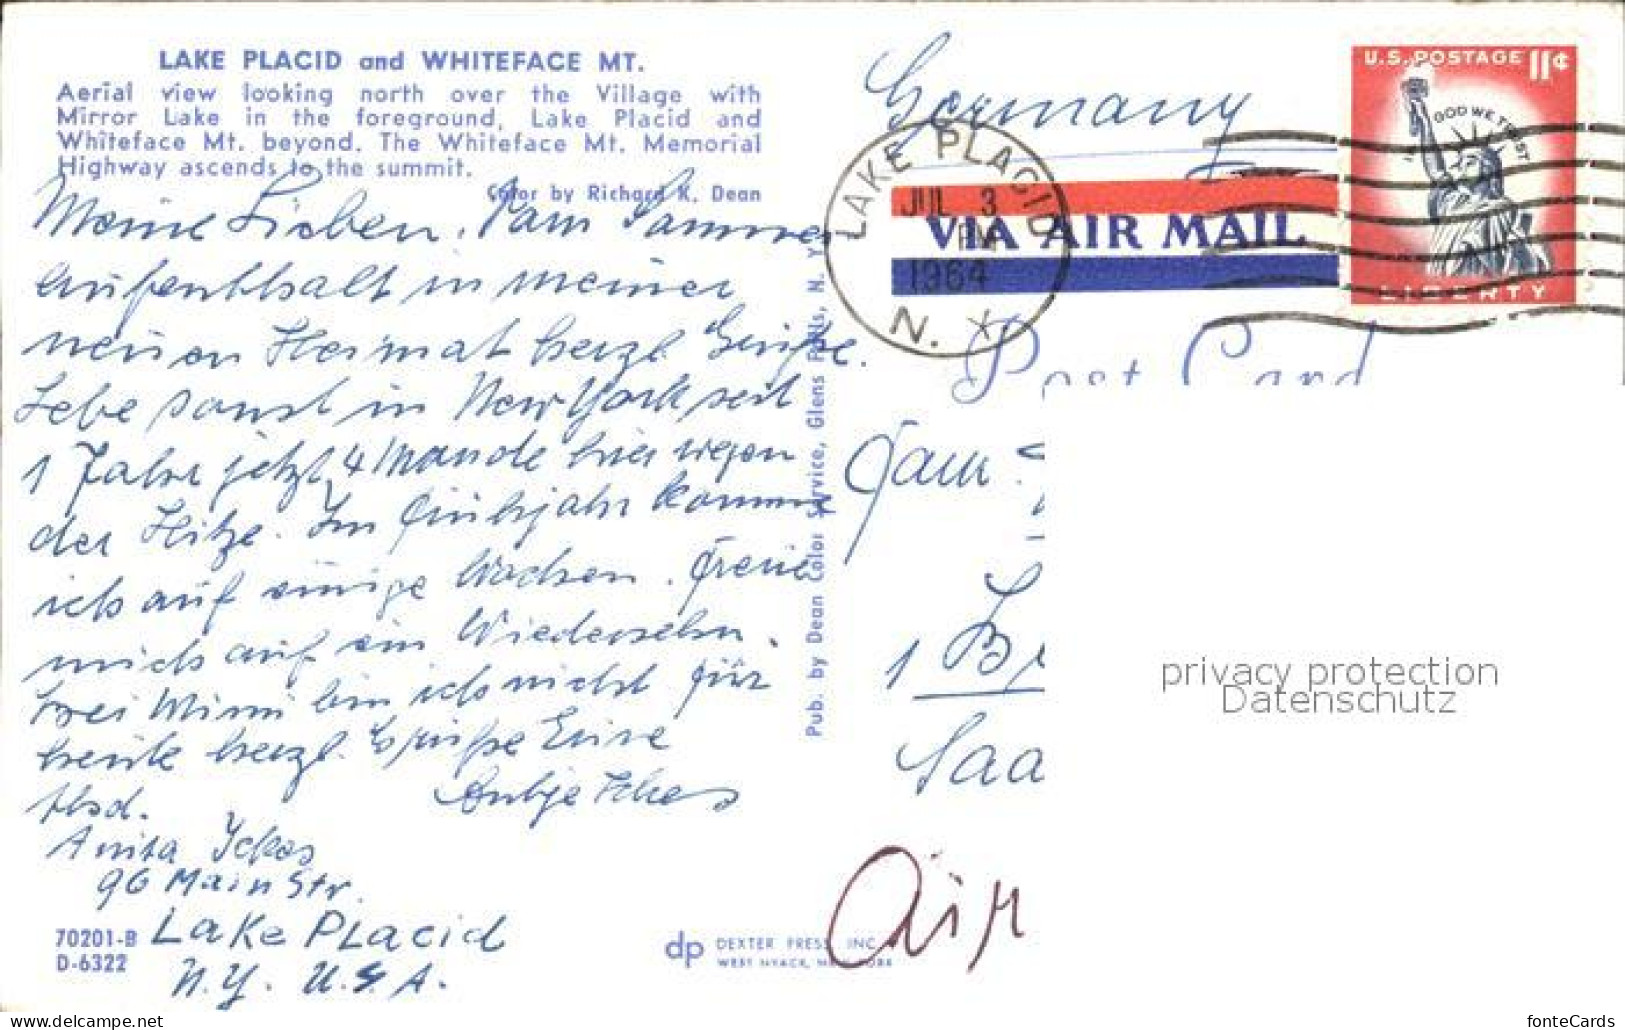 LAKE PLACID and WHITEFACE MT.
Aerial view looking north over the Village with
Mirror Lake in the foreground, Lake Placid and
Whiteface Mt. beyond. The Whiteface Mt. Memorial
Highway ascends to the summit.
Color by Richard K. Dean
Meine Lieben. Vom Sommer
aufenthalt in meiner
neuen Heimat herzl. Grüße.
Lebe sonst in New York seit
1 Jahr jetzt 4 Monate hier wegen
der Hitze. Im Frühjahr komme
ich auf einige Wochen. Freue
mich auf ein Wiedersehn.
Bei Mimi bin ich nicht für
heute herzl. Grüße Eure
Absd.
Anita Ickes
96 Main Str.
Lake Placid
N.Y. U.S.A.
70201-B
D-6322
Pub. by Dean Color Service, Glens Falls, N. Y.
dp DEXTER PRESS, INC.
WEST NYACK, NEW YORK
Germany
LAKE PLACID
JUL 3
PM
1964
N.
VIA AIR MAIL
U.S. POSTAGE 11¢
IN GOD WE TRUST
LIBERTY
Post Card
1 B
Saa
Air
privacy protection
Datenschutz
https://www.delcampe.net
fonteCards